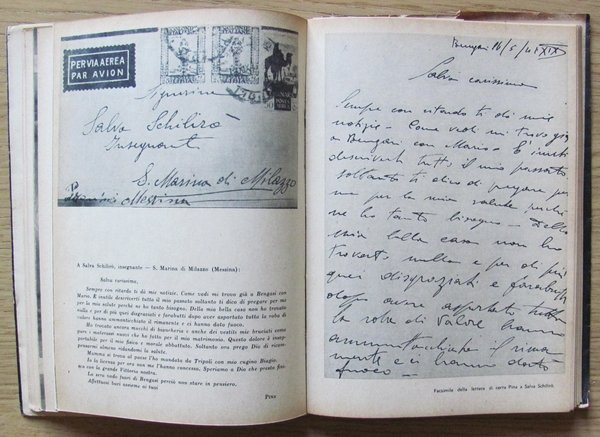 PER VIA AEREA
PAR AVION
Signorina
Salva Schilirò
Insegnante
S. Marina di Milazzo
Messina
A Salva Schilirò, insegnante — S. Marina di Milazzo (Messina):
Salva carissima,
Sempre con ritardo ti dò mie notizie. Come vedi mi trovo già a Bengasi con
Mario. E' inutile descriverti tutto il mio passato soltanto ti dico di pregare per me
per la mia salute perché ne ho tanto bisogno. Della mia bella casa non ho trovato
nulla e per di più quei disgraziati e farabutti dopo aver asportato tutta la roba di
valore hanno ammonticchiato il rimanente e ci hanno dato fuoco.
Ho trovato ancora mucchi di biancheria e anche dei vestiti mie bruciati come
pure tutti i mobili che avevo fatto per il mio matrimonio. Questo dolore è insop-
portabile per il mio fisico e morale abbattuto. Soltanto ora prego Dio di ricom-
pensarmi almeno ridandomi la salute.
Mamma si trova al paese l'ho mandata da Tripoli con mio cugino Biagio.
Io la licenza per ora non me l'hanno concessa. Speriamo a Dio che presto fini-
sca con la grande Vittoria nostra.
La sera vado fuori di Bengasi perciò non stare in pensiero.
Affettuosi baci assieme ai tuoi
Pina
Bengasi 16/5/41 XIX
Salva carissima
Sempre con ritardo ti dò mie
notizie - Come vedi mi trovo già
a Bengasi con Mario - E' inutile
descriverti tutto il mio passato
soltanto ti dico di pregare per
me per la mia salute perché
ne ho tanto bisogno - Della
mia bella casa non ho
trovato nulla e per di più
quei disgraziati e farabutti
dopo aver asportato tutta
la roba di valore hanno
ammonticchiato il rima
nente e ci hanno dato
fuoco -
Facsimile della lettera di certa Pina a Salva Schilirò.